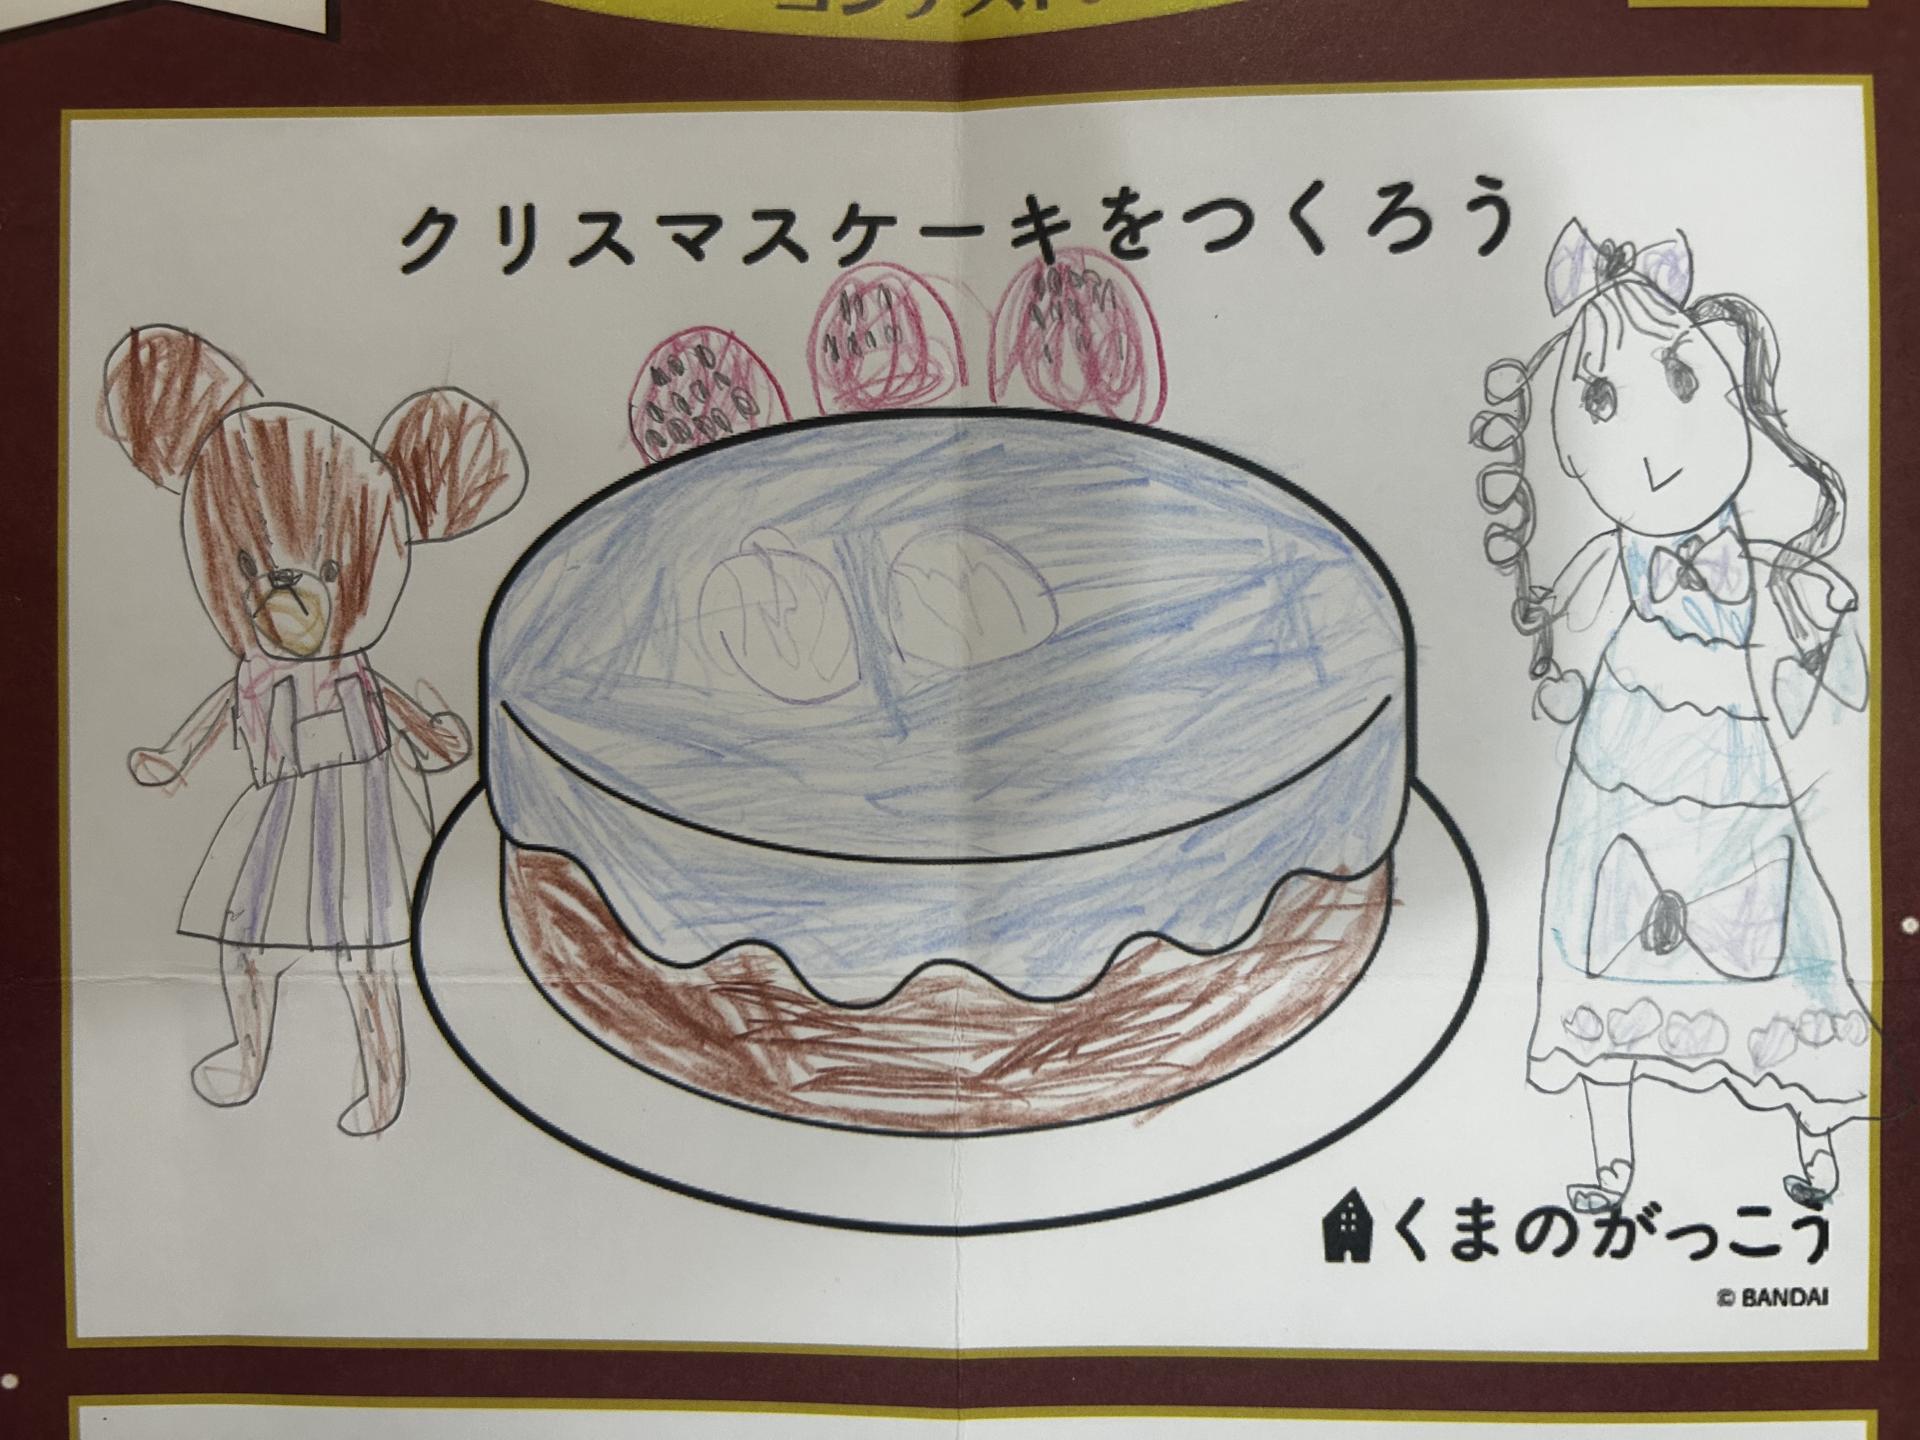 コンテスト。
クリスマスケーキをつくろう
くまのがっこう
© BANDAI